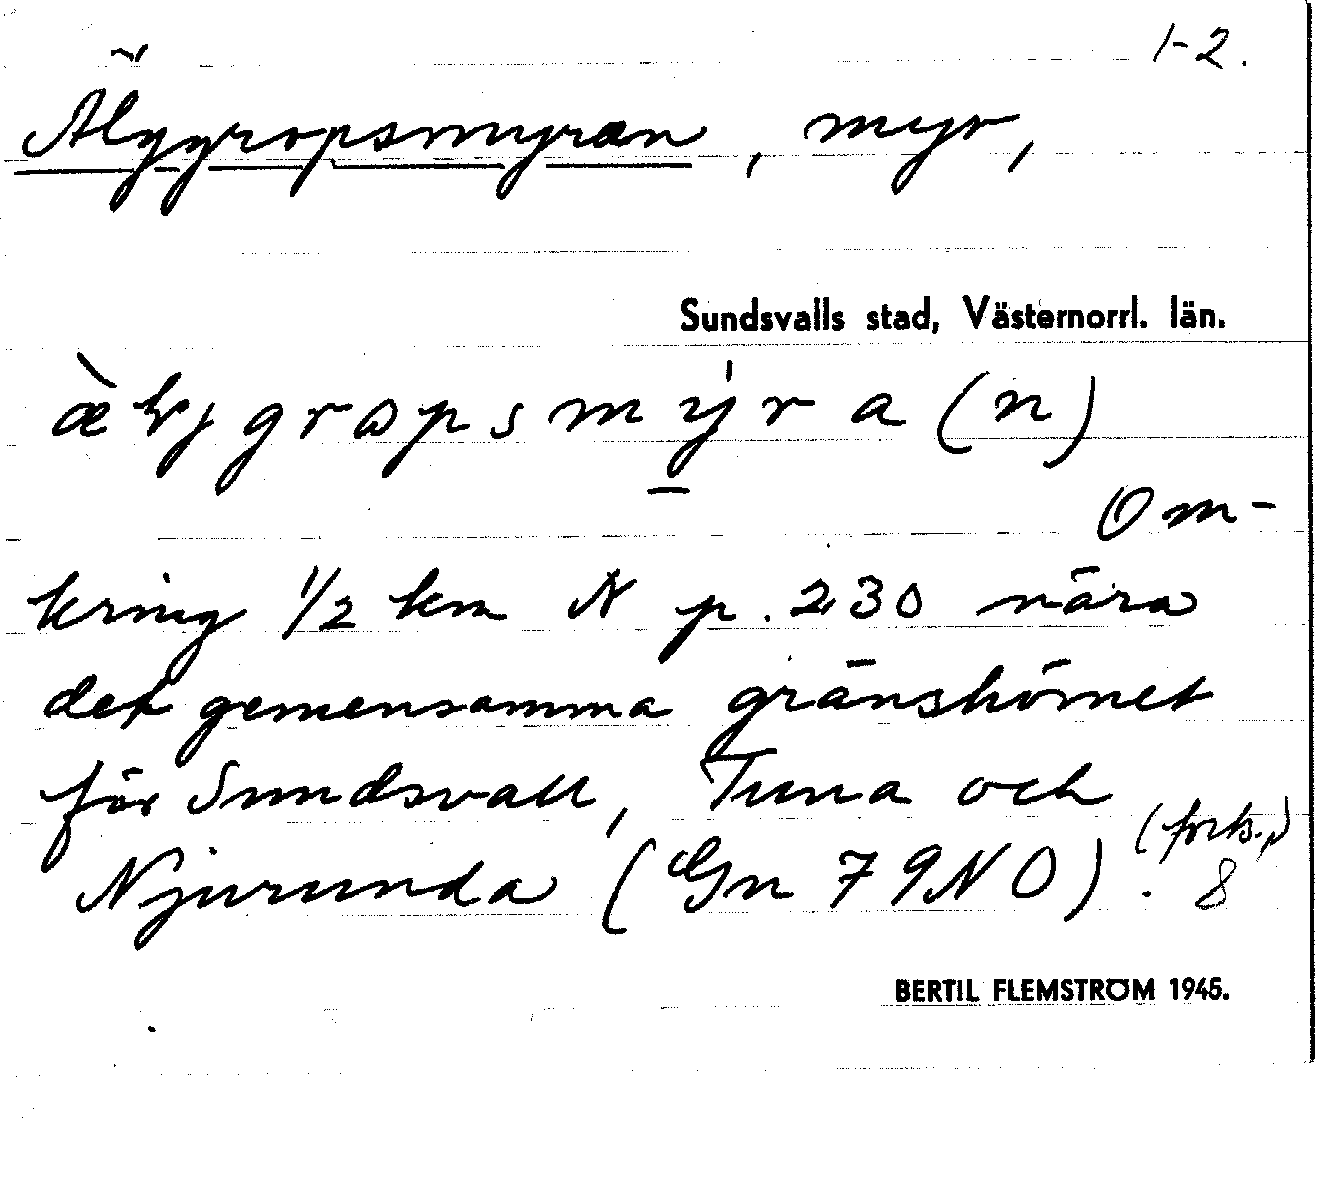 1-2.
Älggropsmyran, myr,
Sundsvalls stad, Västernorrl. län.
Om-
kring 1/2 km N p. 230 nära
det gemensamma gränshörnet
för Sundsvall, Tuna och
Njurunda (Gn 79NO). (forts.)
8
BERTIL FLEMSTRÖM 1945.